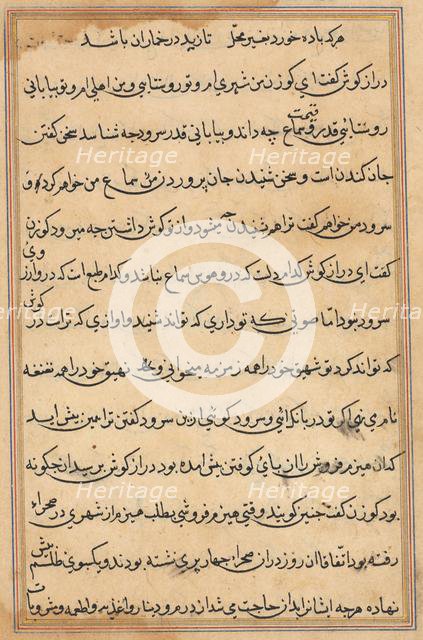 هرکه باده خورد بغیر محل تا زید در خماران باشد
دراز کوش کفت ای کوزن من شهری ام و تو روستایی و من اهلی ام و تو بیابانی
روستائی قدر و قیمت سماع چه داند و بیابانی قدر سرود چه شناسد سخن کفتن
جان کندن است و سخن شنیدن جان پروردن من سماع من خواهم کرد و
سرود من خواهم کفت ترا هم شنیدن چه میشود و از تو کوش داشتن چه میرود کوزن
کفت ای دراز کوش کدام دلست که درو هوس سماع نباشد و کدام طبع است که درو آرزوی
سرود نبود اما صوتی که تو داری که تواند شنید و آوازی که تراست در کوش
که تواند کرد تو شهیق خود را همه زمزمه میخوانی و نهیق خود را همه نغمه
نام می نهی اکر تو در بانک آئی و سرود کوئی از این سرود کفتن ترا همین پیش آید
که آن هیزم فروش را از پای کوفتن پیش آمده بود دراز کوش پرسید آن چکونه
بود کوزن کفت چنین کویند وقتی هیزم فروشی بطلب هیزم از شهری در صحرا
رفته بود اتفاقا آن روز در آن صحرا چهار پری نشسته بودند و یک سبوی طلسم پیش
نهاده هرچه ایشانرا بدان حاجت می شد از درم و دینار و اغذیه و اطعمه و مشروبات
Heritage
Images